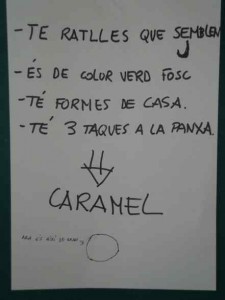 - TE RATLLES QUE SEMBLEN
J
- ÉS DE COLOR VERD FOSC
- TÉ FORMES DE CASA.
- TÉ 3 TAQUES A LA PANXA.
CARAMEL